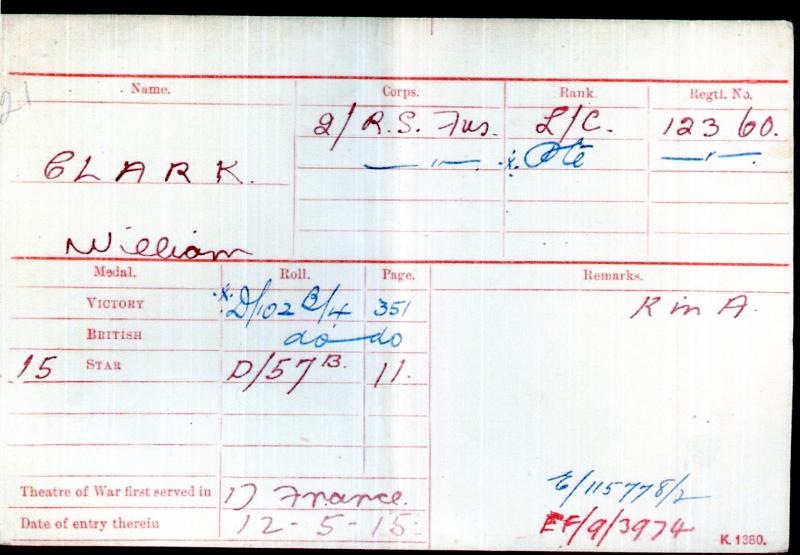 21
Name. Corps. Rank. Regtl. No.
2/ R.S. Fus. L/C. 12360.
CLARK. —"— × Pte —"—
William
Medal. Roll. Page. Remarks.
VICTORY × D/102 B/4 351 K in A.
BRITISH do do
15 STAR D/57 B. 11.
Theatre of War first served in 1) France.
Date of entry therein 12-5-15
E/115778/2
EF/9/3974
K. 1380.